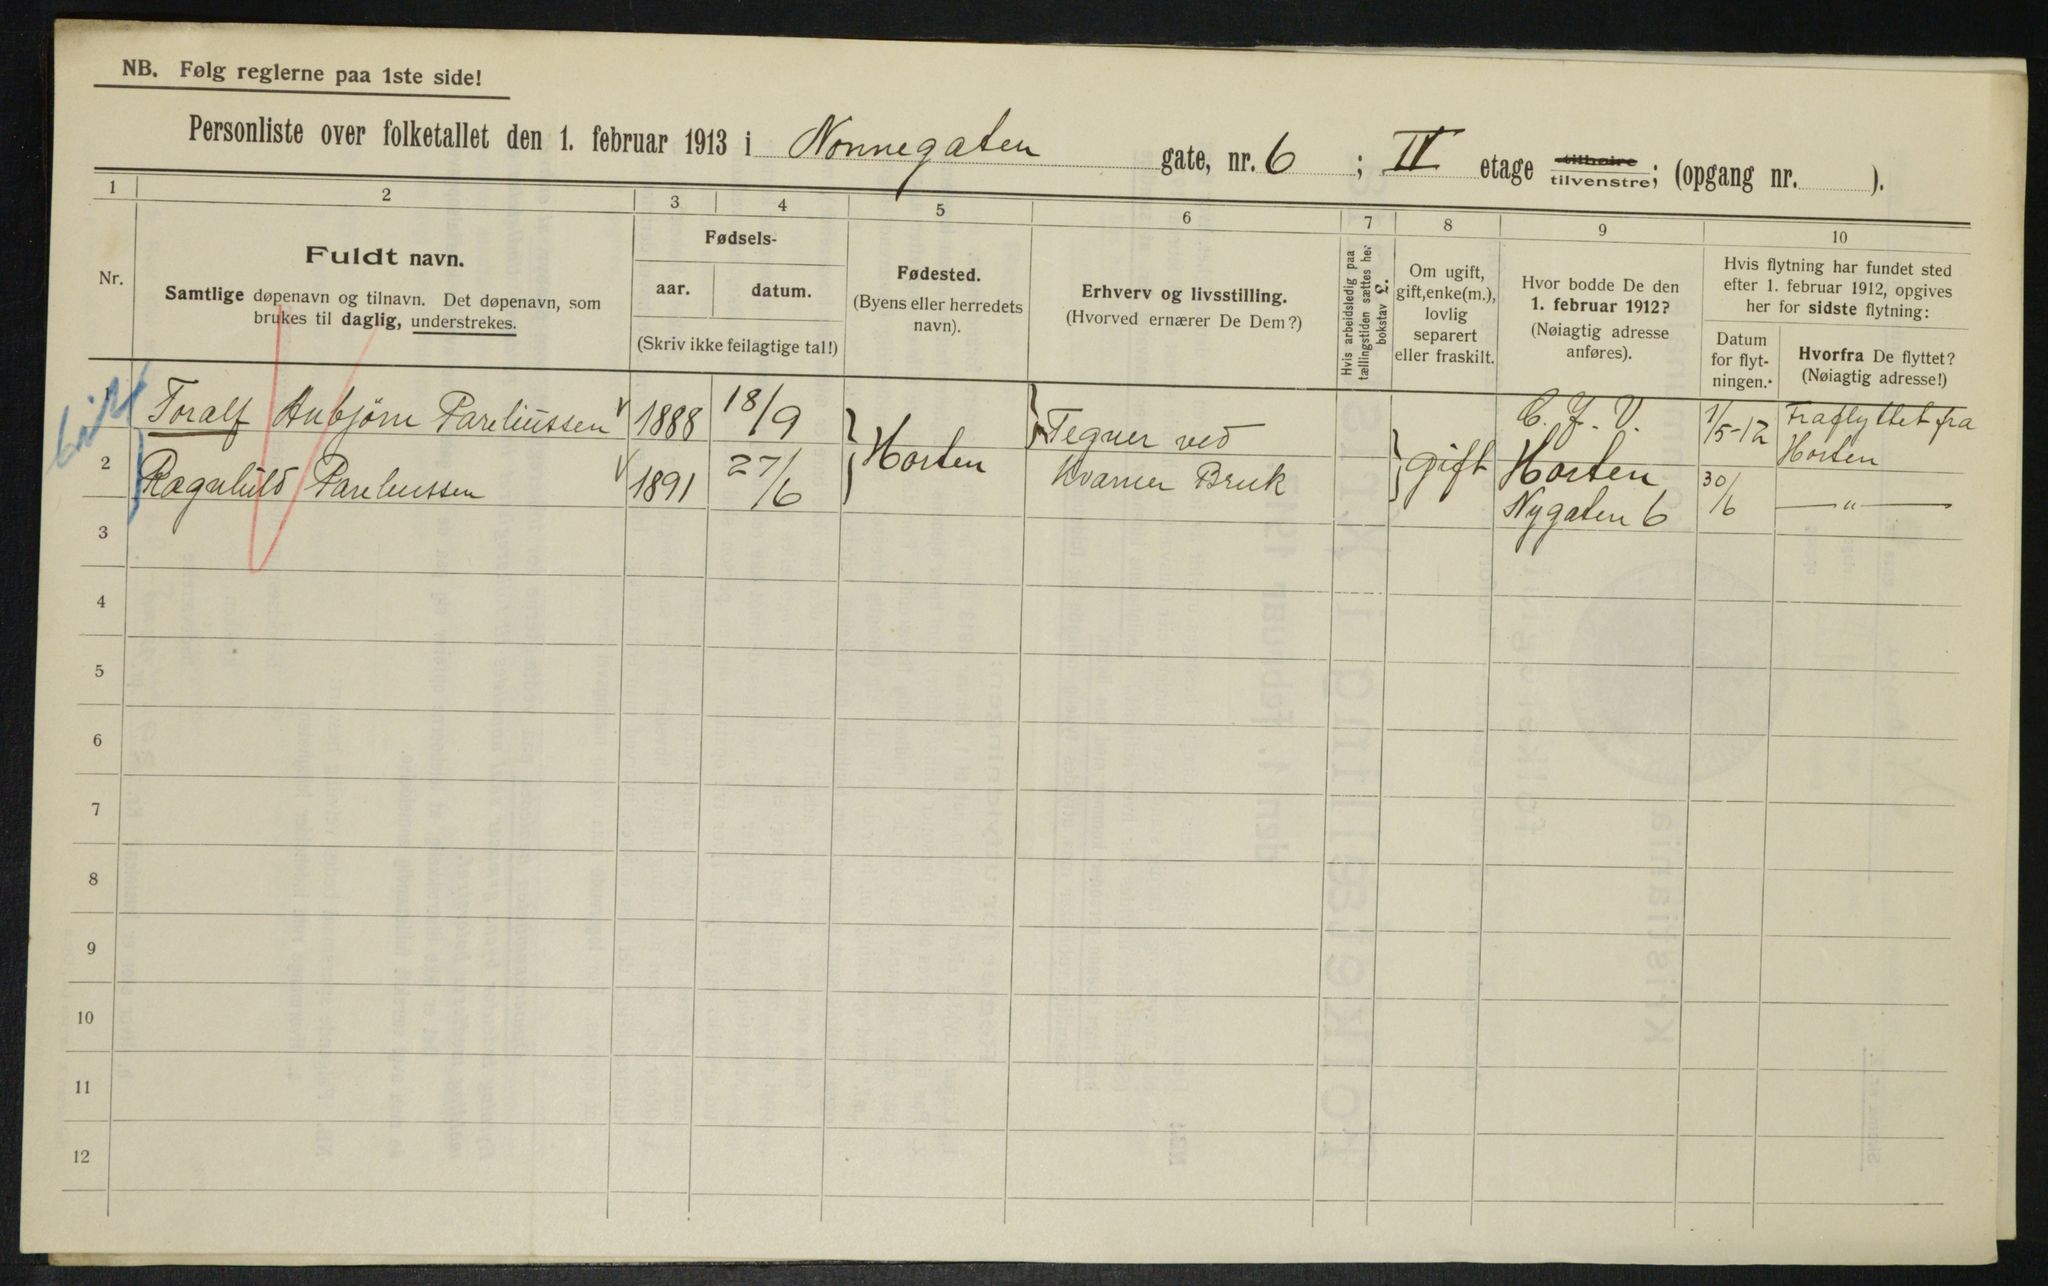 NB. Følg reglerne paa 1ste side!
Personliste over folketallet den 1. februar 1913 i Nonnegaten gate, nr. 6 ; II etage tilhøire tilvenstre; (opgang nr. ).
1 2 3 4 5 6 7 8 9 10
Nr.
Fuldt navn.
Samtlige døpenavn og tilnavn. Det døpenavn, som
brukes til daglig, understrekes.
Fødsels-
aar. datum.
(Skriv ikke feilagtige tal!)
Fødested.
(Byens eller herredets
navn).
Erhverv og livsstilling.
(Hvorved ernærer De Dem?)
Hvis arbeidsledig paa
tællingstiden sættes her
bokstav L.
Om ugift,
gift, enke(m.),
lovlig
separert
eller fraskilt.
Hvor bodde De den
1. februar 1912?
(Nøiagtig adresse
anføres).
Hvis flytning har fundet sted
efter 1. februar 1912, opgives
her for sidste flytning:
Datum
for flyt-
ningen.
Hvorfra De flyttet?
(Nøiagtig adresse!)
1 Toralf Anbjørn Pareliussen 1888 18/9
2 Ragnhild Pareliussen 1891 27/6
Horten
Tegner ved
Kværner Bruk
gift
C. J. V.
Horten
Nygaten 6
1/5-12
30/6
Fraflyttet fra
Horten
— " —
3
4
5
6
7
8
9
10
11
12